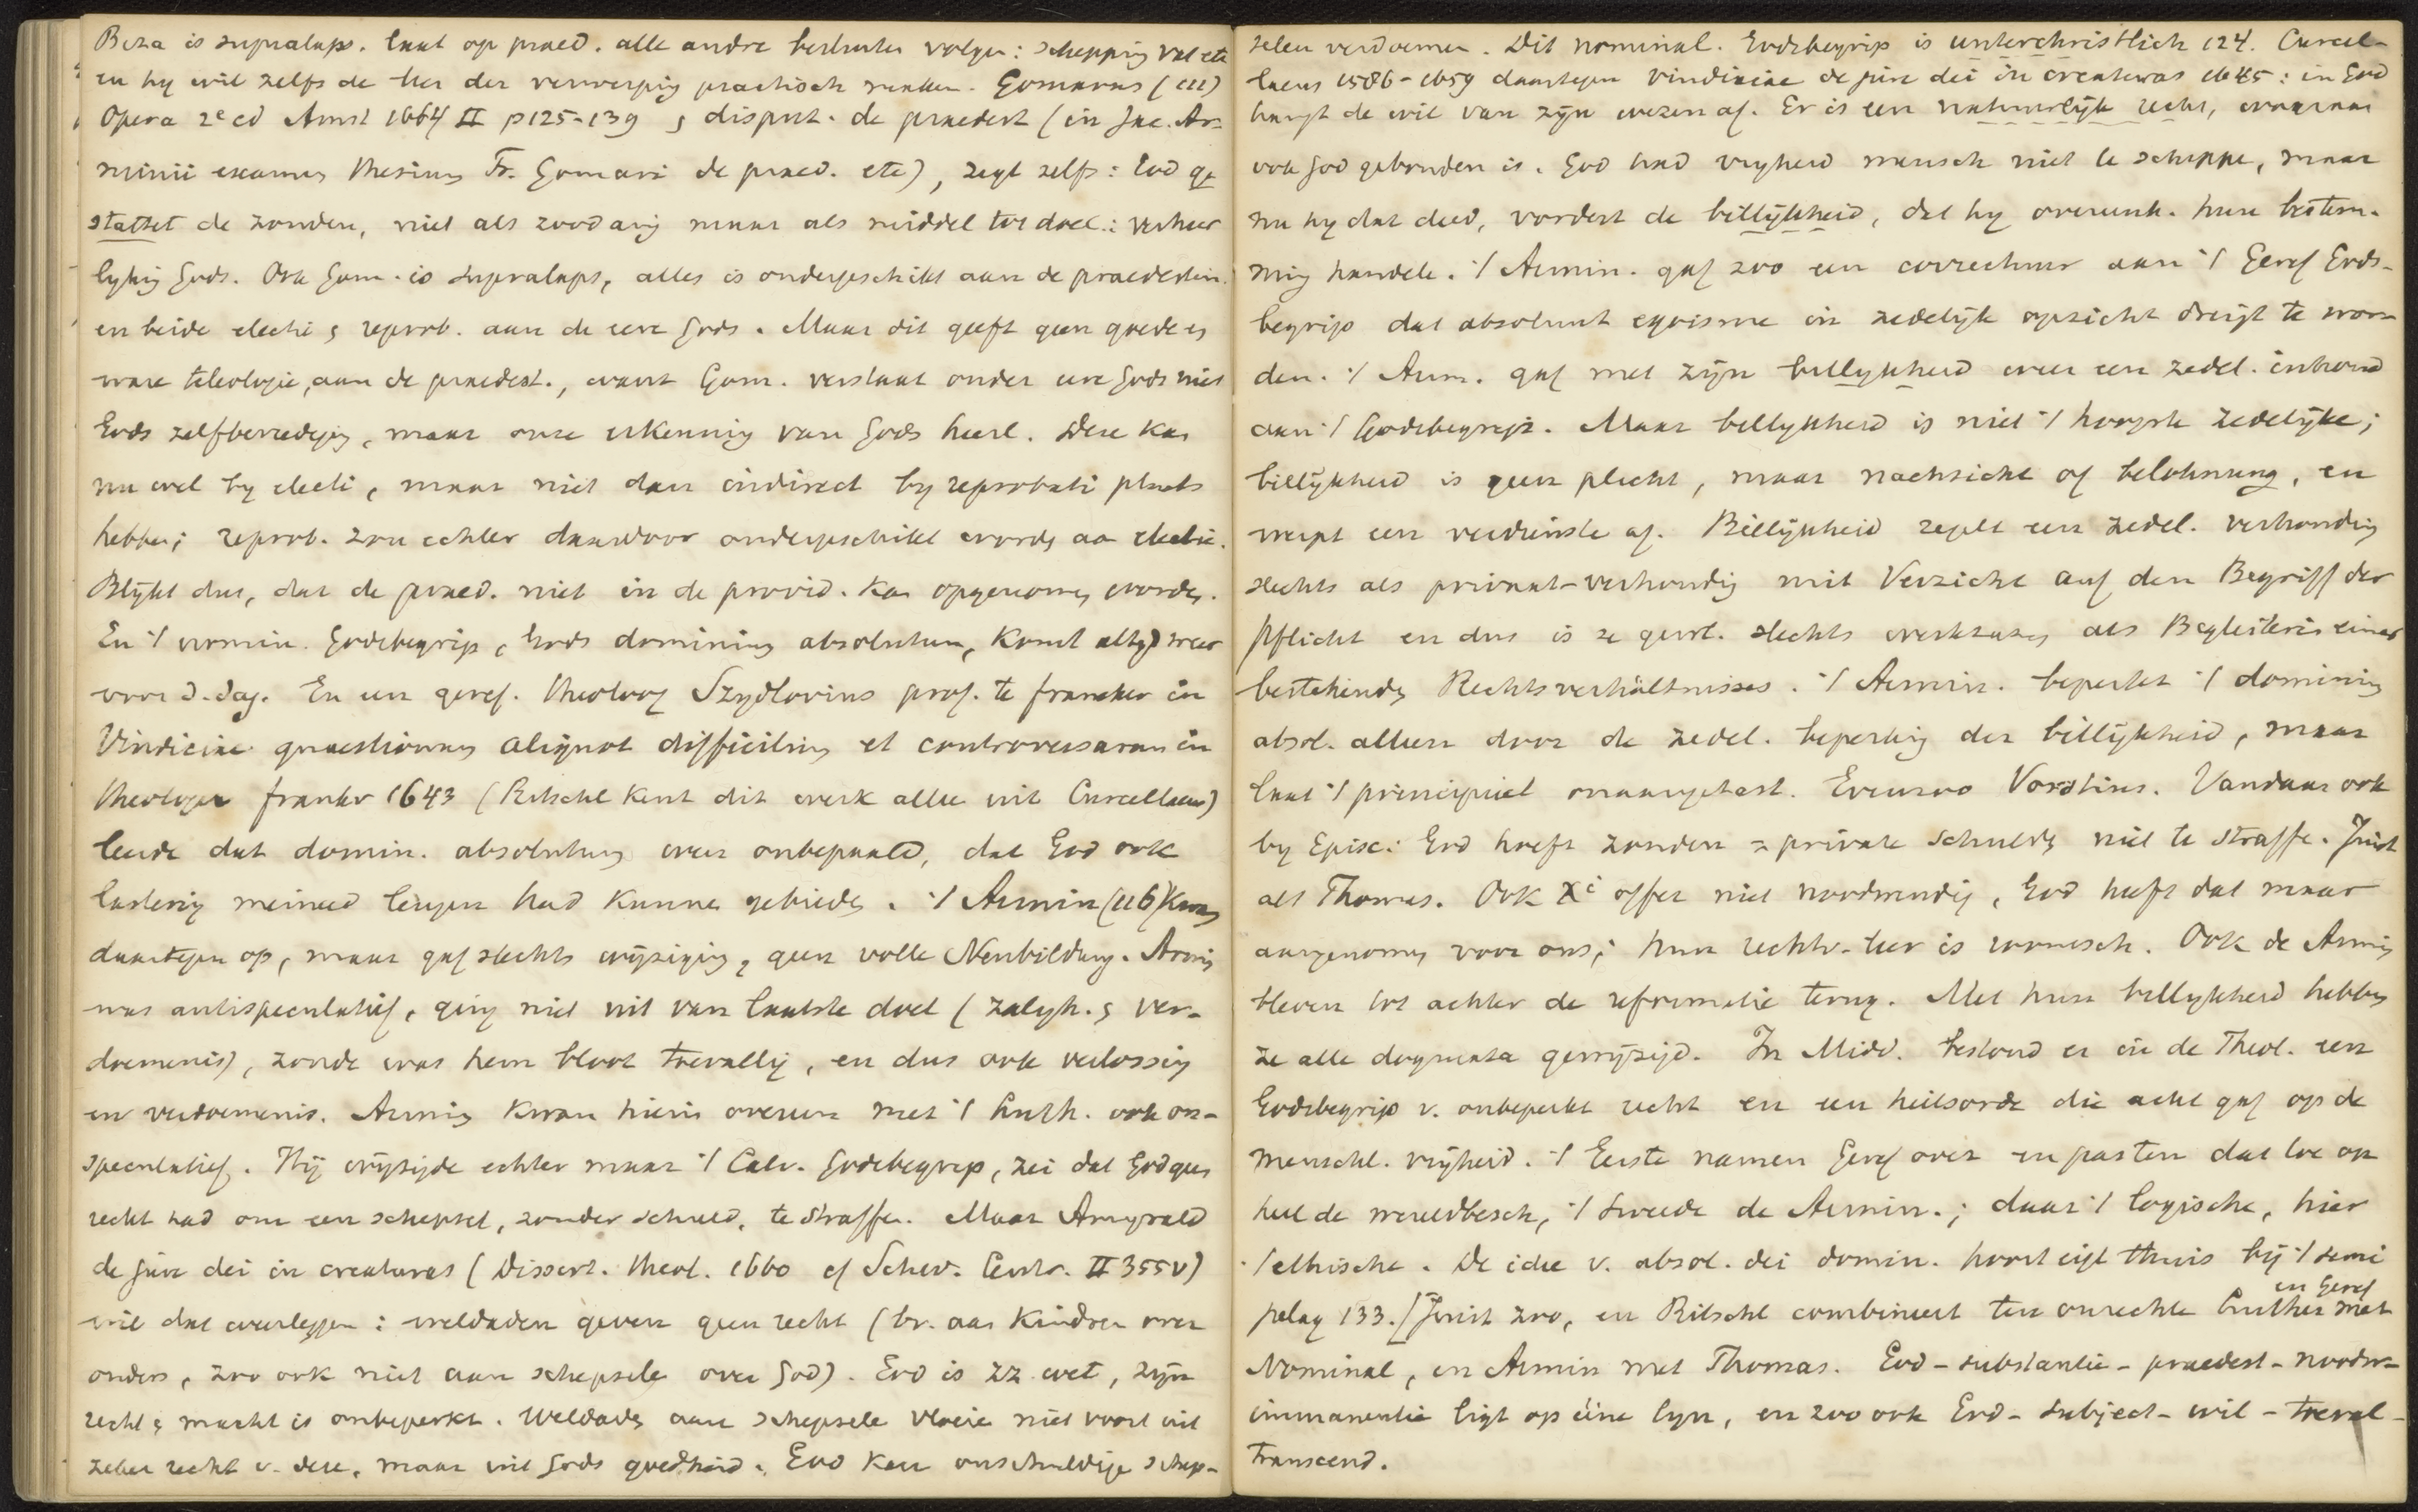 Beza is supralaps. laat op praed. alle andre besluiten volgen: schepping val etc
en hy wil zelfs de leer der verwerping practisch maken. Gomarus (111)
Opera 2e ed Amst 1664 II p125-139, disput. de praedest (in Jac. Ar-
minii examen thesium Fr. Gomari de praed. etc), zegt zelfs: God ge
stattet de zonden, niet als zoodanig maar als middel tot doel: verheer
lyking Gods. Ook Gom. is supralaps, alles is ondergeschikt aan de praedestin.
en beide electi & reprob. aan de eere Gods. Maar dit geeft geen goede en
ware teleologie, aan de praedest., want Gom. verstaat onder eere Gods niet
Gods zelfbevrediging, maar onze erkenning van Gods heerl. Deze kan
nu wel by electi, maar niet dan indirect by reprobati plaats
hebben; reprob. zou echter daardoor ondergeschikt worden aan electie.
Blykt dus, dat de praed. niet in de provid. kan opgenomen worden.
En 't nomin. Godsbegrip, Gods dominium absolutum, komt altyd weer
voor d. dag. En een geref. theoloog Szydlovius prof. te franeker in
Vindiciae quaestionum aliquot difficilium et controversarum in
theologia franeker 1643 (Ritschl kent dit werk alleen uit Curcellaeus)
leerde dat domin. absolutum weer onbepaald, dat God ook
lastering meineed leugen had kunnen gebieden. 't Armin (116) kwam
daartegen op, maar gaf slechts wyziging, geen volle Neubildung. Armin
was antispeculatief, ging niet uit van laatste doel (zaligh. & ver-
doemenis), zonde was hem bloot toevallig, en dus ook verlossing
en verdoemenis. Armin kwam hierin overeen met 't Luth. ook on-
speculatief. Hij wyzigde echter maar 't Calv. Godsbegrip, zei dat God geen
recht had om een schepsel, zonder schuld, te straffen. Maar Amyrald
de jure dei in creaturas (Dissert. theol. 1660 cf Schw. Centr. II 355v)
wil dat weerleggen: weldaden geven geen recht (bv. aan kinderen over
ouders, zoo ook niet aan schepselen over God). God is zz. wet, zijn
recht & macht is onbeperkt. Weldaden aan schepselen vloeien niet voort uit
zeker recht v. deze, maar uit Gods goedheid. God kan onschuldige schep-
selen verdoemen. Dit nominal. Godsbegrip is unterchristlich 124. Curcel-
laeus 1586-1659 daartegen vindiciae de jure dei in creaturas 1645: in God
hangt de wil van zijn wezen af. Er is een natuurlijk recht, waaraan
ook God gebonden is. God had vryheid mensch niet te scheppen, maar
nu hy dat deed, vordert de billijkheid, dat hy overeenk. hun bestem-
ming handele. 't Armin. gaf zoo een correctuur aan 't Geref Gods-
begrip dat absoluut egoisme in zedelijk opzicht dreigt te wor-
den. 't Arm. gaf met zijn billykheid weer een zedel. inhoud
aan 't Godsbegrip. Maar billykheid is niet 't hoogste zedelijke;
billijkheid is geen plicht, maar nachsicht of belohnung, en
werpt een verdienste af. Billijkheid regelt een zedel. verhouding
slechts als privaat-verhouding mit Verzicht auf den Begriff der
Pflicht en dus is ze geoorl. slechts werkzaam als Begleiterin eines
bestehenden Rechtsverhältnisses. 't Armin. beperkt 't dominium
absol. alleen door de zedel. beperking der billijkheid, maar
laat 't principieel onaangetast. Evenzoo Vorstius. Vandaar ook
by Episc: God hoeft zonden = private schulden niet te straffen. Juist
als Thomas. Ook Xi offer niet noodwendig, God heeft dat maar
aangenomen voor ons; hun rechtv-leer is roomsch. Ook de Armin
bleven tot achter de reformatie terug. Met hun billykheid hebben
ze alle dogmata gewijzigd. In Midd. bestond er in de Theol. een
Godsbegrip v. onbeperkt recht en een heilsorde die acht gaf op de
menschl. vrijheid. 't Eerste namen Geref over en pasten dat toe op
heel de wereldbesch, 't tweede de Armin.; daar 't logische, hier
't ethische. De idee v. absol. dei domin. hoort eigl thuis bij 't semi
pelag 133. [Juist zoo, en Ritschl combineert ten onrechte Luther en Geref met
Nominal, en Armin met Thomas. God - substantie - praedest - noodw-
immanentie ligt op ééne lyn, en zoo ook God - subject - wil - toeval -
transcend.